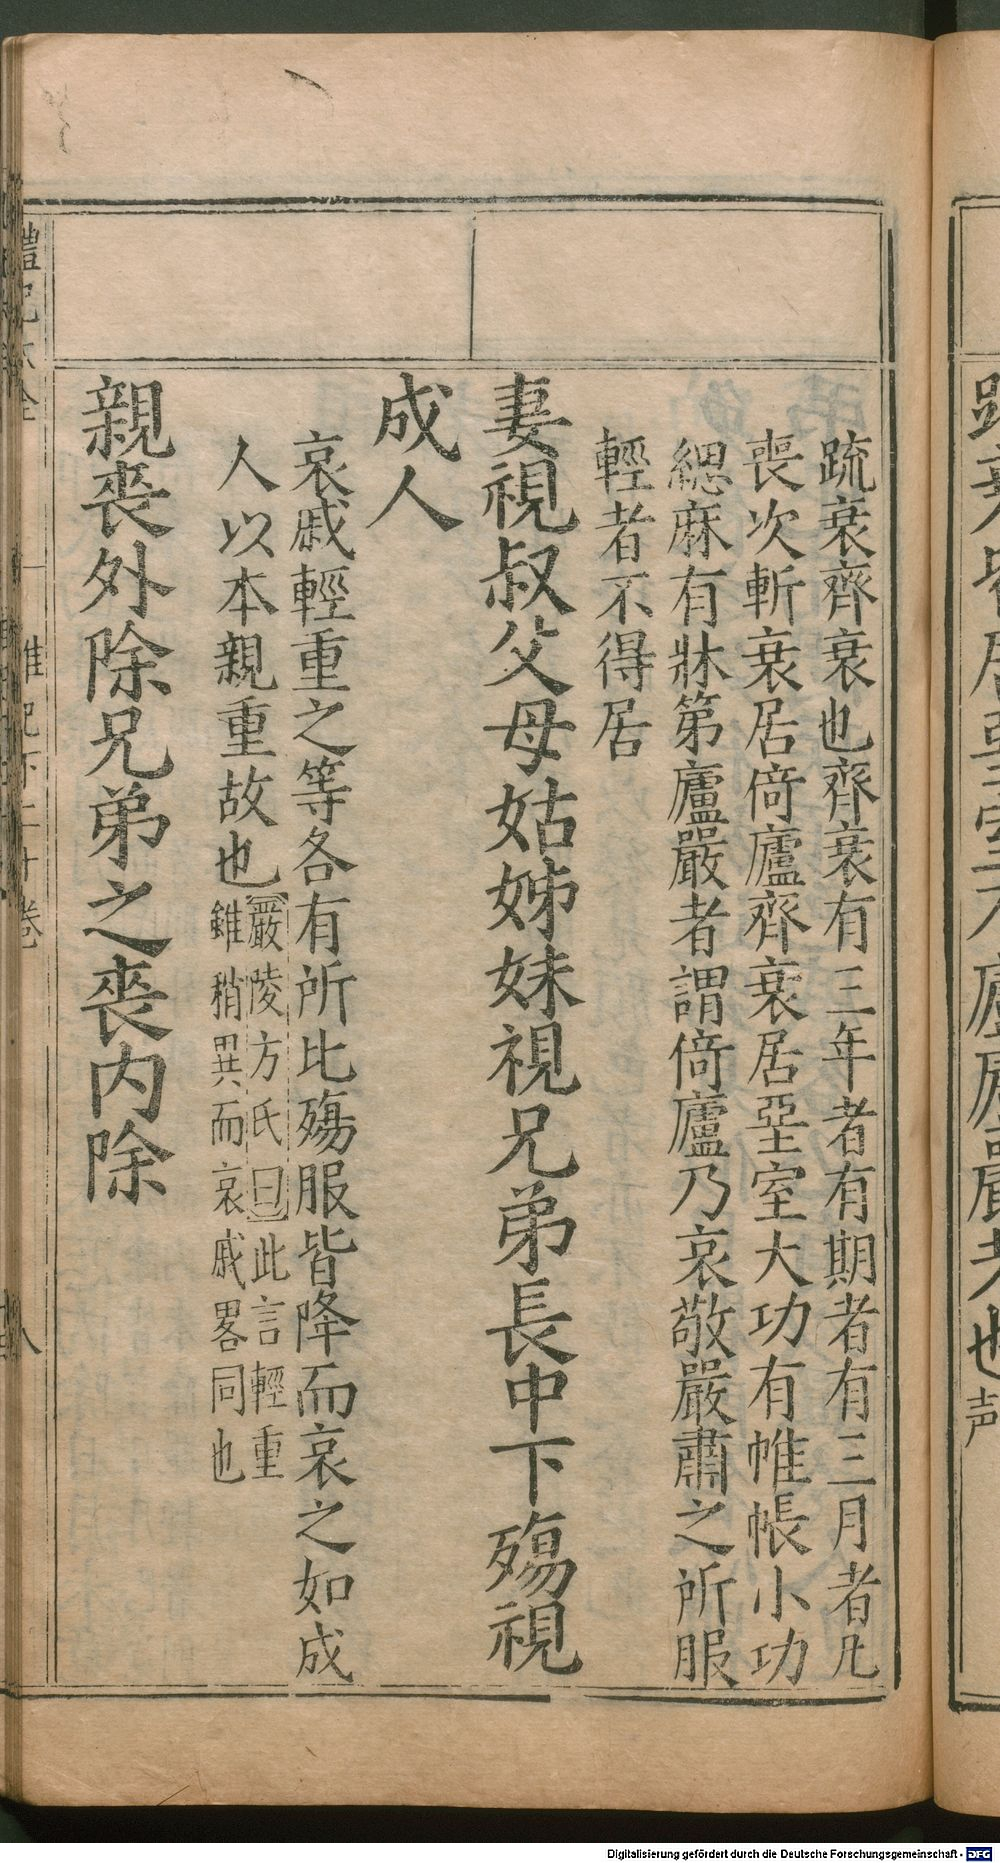 疏衰齊衰也齊衰有三年者有期者有三月者凡
喪次斬衰居倚廬齊衰居堊室大功有帷帳小功
緦麻有牀第廬嚴者謂倚廬乃哀敬嚴肅之所服
輕者不得居
妻視叔父母姑姊妹視兄弟長中下殤視
成人
哀戚輕重之等各有所比殤服皆降而哀之如成
人以本親重故也
嚴陵方氏曰此言輕重
雖稍異而哀戚畧同也
親喪外除兄弟之喪內除
禮記大全 雜記下二十卷 八
Digitalisierung gefördert durch die Deutsche Forschungsgemeinschaft - DFG